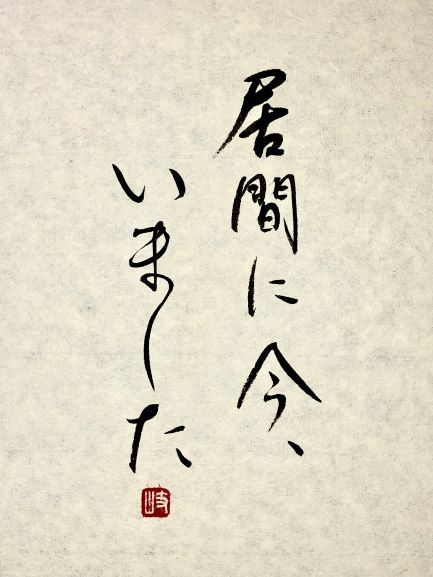 居間に今、
いました
岐